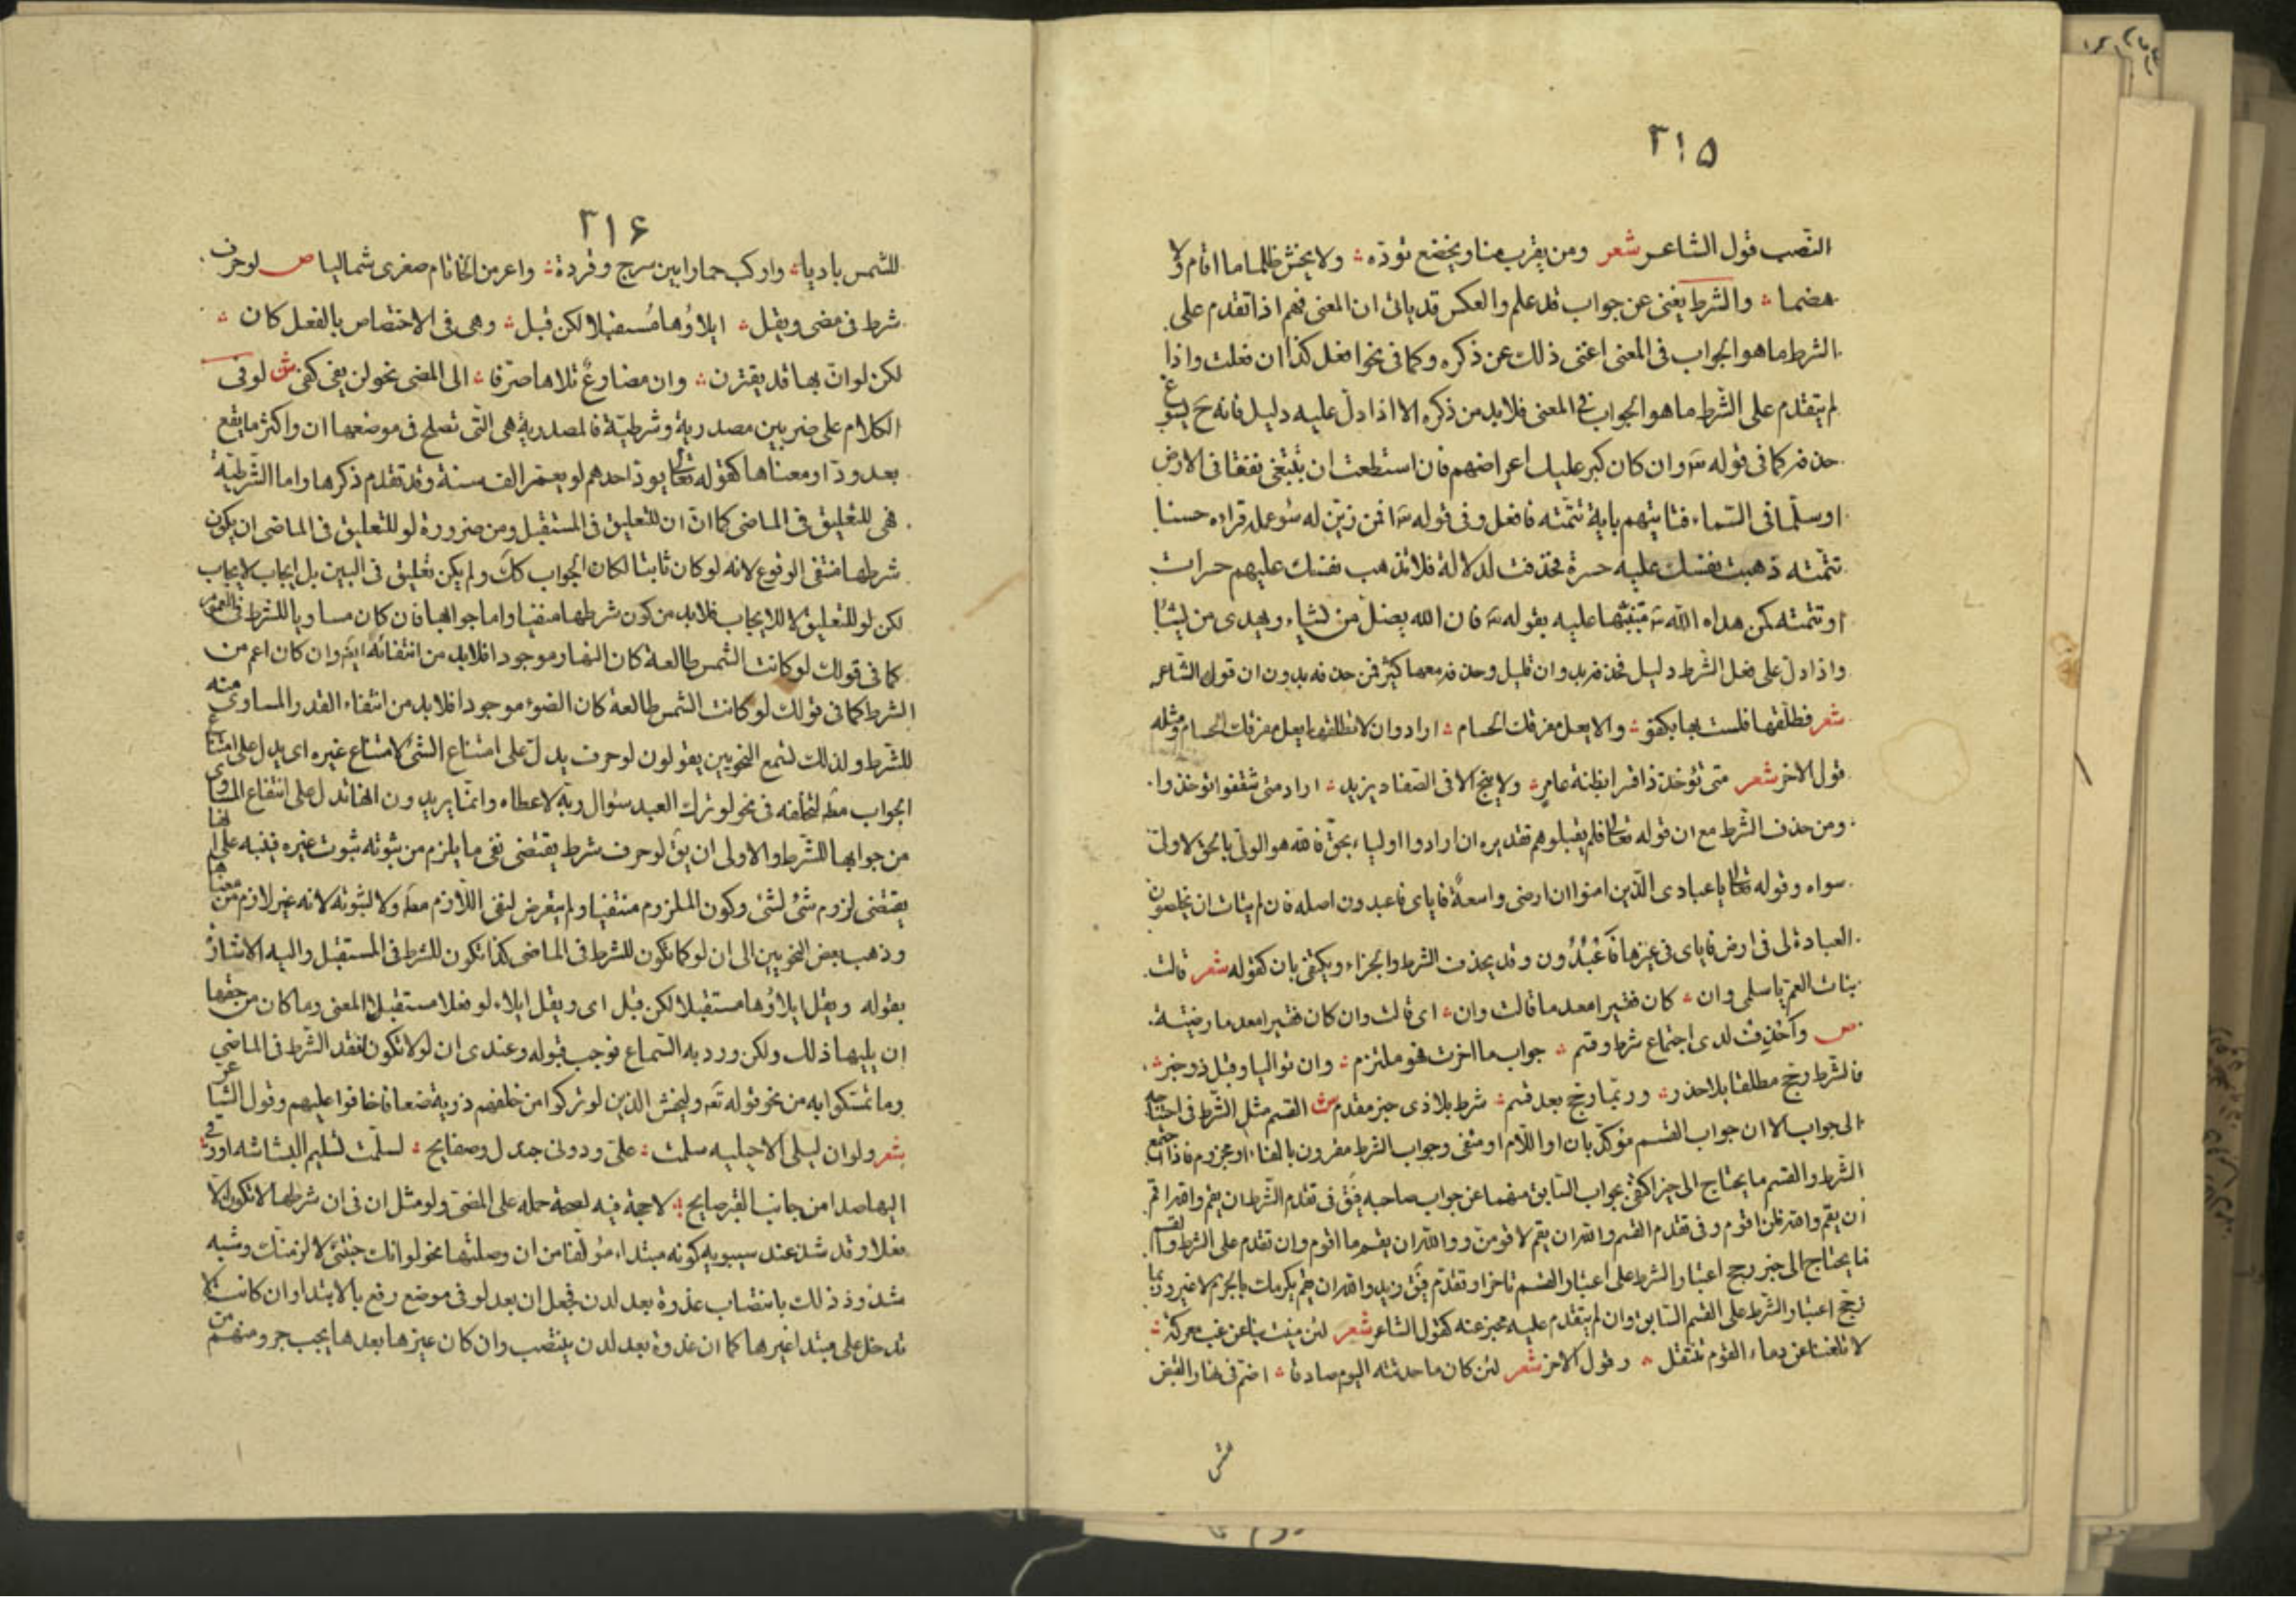 ٣١۵
النصب قول الشاعر شعر ومن يقرب منا ويخضع نؤوه ولا يخش ظلما ما اقام ولا
هضما والشرط يغنى عن جواب قد علم والعكس قد ياتى ان المعنى فهم اذا تقدم على
الشرط ما هو الجواب فى المعنى اغنى ذلك عن ذكره وكما فى نحو افعل كذا ان فعلت واذا
لم يتقدم على الشرط ما هو الجواب فى المعنى فلا بد من ذكره الا اذا دل عليه دليل فانه ح يسوغ
حذفه كما فى قوله تع وان كان كبر عليك اعراضهم فان استطعت ان تبتغى نفقا فى الارض
او سلما فى السماء فتاتيهم باية تتمته فافعل وفى قوله تع افمن زين له سوء عمله فراه حسنا
تتمته ذهبت نفسك عليه حسرة فحذفت لدلالة فلا تذهب نفسك عليهم حسرات
او تتمته كمن هداه الله تع منبها عليه بقوله تع فان الله يضل من يشاء ويهدى من يشاء
واذا دل على فعل الشرط دليل فحذفه بدون ان قليل وحذفه معها كثير فمن حذفه بدون ان قول الشاعر
شعر فطلقها فلست بها بكفو والا يعل مفرقك الحسام اراد وان لا تطلقها يعل مفرقك الحسام ومثله
قول الاخر شعر متى تؤخذوا قسرا بظنة عامر ولا ينج الا فى الصفاد يزيد اراد متى تثقفوا تؤخذوا
ومن حذف الشرط مع ان قوله تعالى فلم تقتلوهم تقديره ان ارادوا اولياء بحق فالله هو الولى بالحق لا ولى
سواه وقوله تعالى يا عبادى الذين امنوا ان ارضى واسعة فاياى فاعبدون اصله فان لم يتات ان تخلصوا
العبادة لى فى ارض فاياى فى غيرها فاعبدون وقد يحذف الشرط والجزاء ويكتفى بان كقوله شعر قالت
بنات العم يا سلمى وان كان فقيرا معدما قالت وان اى قالت وان كان فقيرا معدما رضيته
ص واحذف لدى اجتماع شرط وقسم جواب ما اخرت فهو ملتزم وان تواليا وقبل ذو خبر
فالشرط رجح مطلقا بلا حذر وربما رجح بعد قسم شرط بلا ذى خبر مقدم ش القسم مثل الشرط فى احتياجه
الى جواب الا ان جواب القسم مؤكد بان او اللام او منفى وجواب الشرط مقرون بالفاء او مجزوم فاذا اجتمع
الشرط والقسم ما يحتاج الى خبر اكتفى بجواب السابق منهما عن جواب صاحبه فيق فى تقدم الشرط ان يقم والله اقم
ان يقم والله فلن اقوم وفى تقدم القسم والله ان يقم لاقومن ووالله ان يقم ما اقوم وان تقدم على الشرط والقسم
ما يحتاج الى خبر رجح اعتبار الشرط على اعتبار القسم تاخر او تقدم فيق زيد والله ان يقم يكرمك بالجزم لا غير وربما
رجح اعتبار الشرط على القسم السابق وان لم يتقدم عليه مخبر عنه كقول الشاعر شعر لئن منيت بنا عن غب معركة
لا تلفنا عن دماء القوم ننتفل وقول الاخر شعر لئن كان ما حدثته اليوم صادقا اصم فى نهار القيظ
للشمس
٣١۶
للشمس باديا واركب حمارا بين سرج وفروة واعر من الخاتام صغرى شماليا ص لو حرف
شرط فى مضى ويقل ايلاؤها مستقبلا لكن قبل وهى فى الاختصاص بالفعل كان
لكن لو ان بها قد يقترن وان مضارع تلاها صرفا الى المضى نحو لو يفى كفى ش لو فى
الكلام على ضربين مصدرية وشرطية فالمصدرية هى التى تصلح فى موضعها ان واكثر ما يقع
بعد ود او معناها كقوله تعالى يود احدهم لو يعمر الف سنة وقد تقدم ذكرها واما الشرطية
فهى للتعليق فى الماضى كما ان ان للتعليق فى المستقبل ومن ضرورة لو للتعليق فى الماضى ان يكون
شرطها منتفى الوقوع لانه لو كان ثابتا لكان الجواب كك ولم يكن تعليق فى البين بل ايجاب لايجاب
لكن لو للتعليق لا للايجاب فلا بد من كون شرطها منفيا واما جوابها فان كان مساويا للشرط فى العموم
كما فى قولك لو كانت الشمس طالعة كان النهار موجودا فلا بد من انتفائه ايض وان كان اعم من
الشرط كما فى قولك لو كانت الشمس طالعة كان الضوء موجودا فلا بد من انتفاء القدر المساوى منه
للشرط ولذلك تسمع النحويين يقولون لو حرف يدل على امتناع الشئ لامتناع غيره اى يدل على امتناع
الجواب مط لتخلفه فى نحو لو ترك العبد سؤال ربه لاعطاه وانما يريدون انها تدل على انتفاع المساوى
من جوابها للشرط والاولى ان يق لو حرف شرط يقتضى نفى ما يلزم من ثبوته ثبوت غيره فينبه على انها
يقتضى لزوم شئ لشئ وكون الملزوم منتفيا ولم يتعرض لنفى اللازم مط ولا لثبوته لانه غير لازم من معناها
وذهب بعض النحويين الى ان لو كما تكون للشرط فى الماضى كذا تكون للشرط فى المستقبل واليه الاشارة
بقوله ويقل ايلاؤها مستقبلا لكن قبل اى ويقل ايلاء لو فعلا مستقبل المعنى وما كان من حقها
ان يليها ذلك ولكن ورد به السماع فوجب قبوله وعندى ان لو لا تكون لغير الشرط فى الماضى
وما تمسكوا به من نحو قوله تع وليخش الذين لو تركوا من خلفهم ذرية ضعافا خافوا عليهم وقول الشاعر
شعر ولو ان ليلى الاخيليه سلمت على ودونى جندل وصفايح لسلمت تسليم البشاشه او زقى
اليها صدا من جانب القبر صايح لا حجة فيه لصحة حمله على المضى ولو مثل ان فى ان شرطها لا تكون الا
فعلا وقد شذ عند سيبويه كونه مبتداء مؤلفا من ان وصلتها نحو لو انك جئتنى لاكرمتك وشبه
شذوذ ذلك بانتصاب غدوة بعد لدن فجعل ان بعد لو فى موضع رفع بالابتدا وان كانت لا
تدخل على مبتدا غيرها كما ان غدوة بعد لدن ينتصب وان كان غيرها بعدها يجب جره ومنهم من